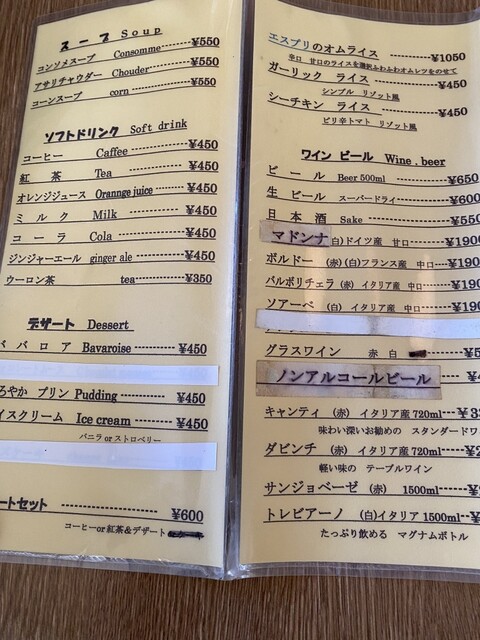 スープ Soup
コンソメスープ Consomme ¥550
アサリチャウダー Chouder ¥550
コーンスープ corn ¥550
ソフトドリンク Soft drink
コーヒー Caffee ¥450
紅 茶 Tea ¥450
オレンジジュース Orannge juice ¥450
ミ ル ク Milk ¥450
コ ー ラ Cola ¥450
ジンジャーエール ginger ale ¥450
ウーロン茶 tea ¥350
デザート Dessert
バ バ ロ ア Bavaroise ¥450
ろやか プリン Pudding ¥450
イスクリーム Ice cream ¥450
バニラ or ストロベリー
ートセット ¥600
コーヒーor 紅茶&デザート
エスプリのオムライス ¥1050
辛口 甘口のライスを選択ふわふわオムレツをのせて
ガーリック ライス ¥450
シンプル リゾット風
シーチキン ライス ¥450
ピリ辛トマト リゾット風
ワイン ビール Wine . beer
ビ ー ル Beer 500ml ¥650
生 ビール スーパードライ ¥600
日 本 酒 Sake ¥550
マドンナ (白)ドイツ産 甘口 ¥190
ボルドー (赤)(白)フランス産 中口 ¥190
バルポリチェラ (赤) イタリア産 中口 ¥190
ソアーベ (白) イタリア産 中口 ¥190
グラスワイン 赤 白 ¥5
ノンアルコールビール ¥4
キャンティ (赤) イタリア産 720ml ¥3
味わい深いお勧めの スタンダードワ
ダビンチ (赤) イタリア産 720ml ¥2
軽い味の テーブルワイン
サンジョベーゼ (赤) 1500ml ¥
トレビアーノ (白)イタリア 1500ml ¥
たっぷり飲める マグナムボトル